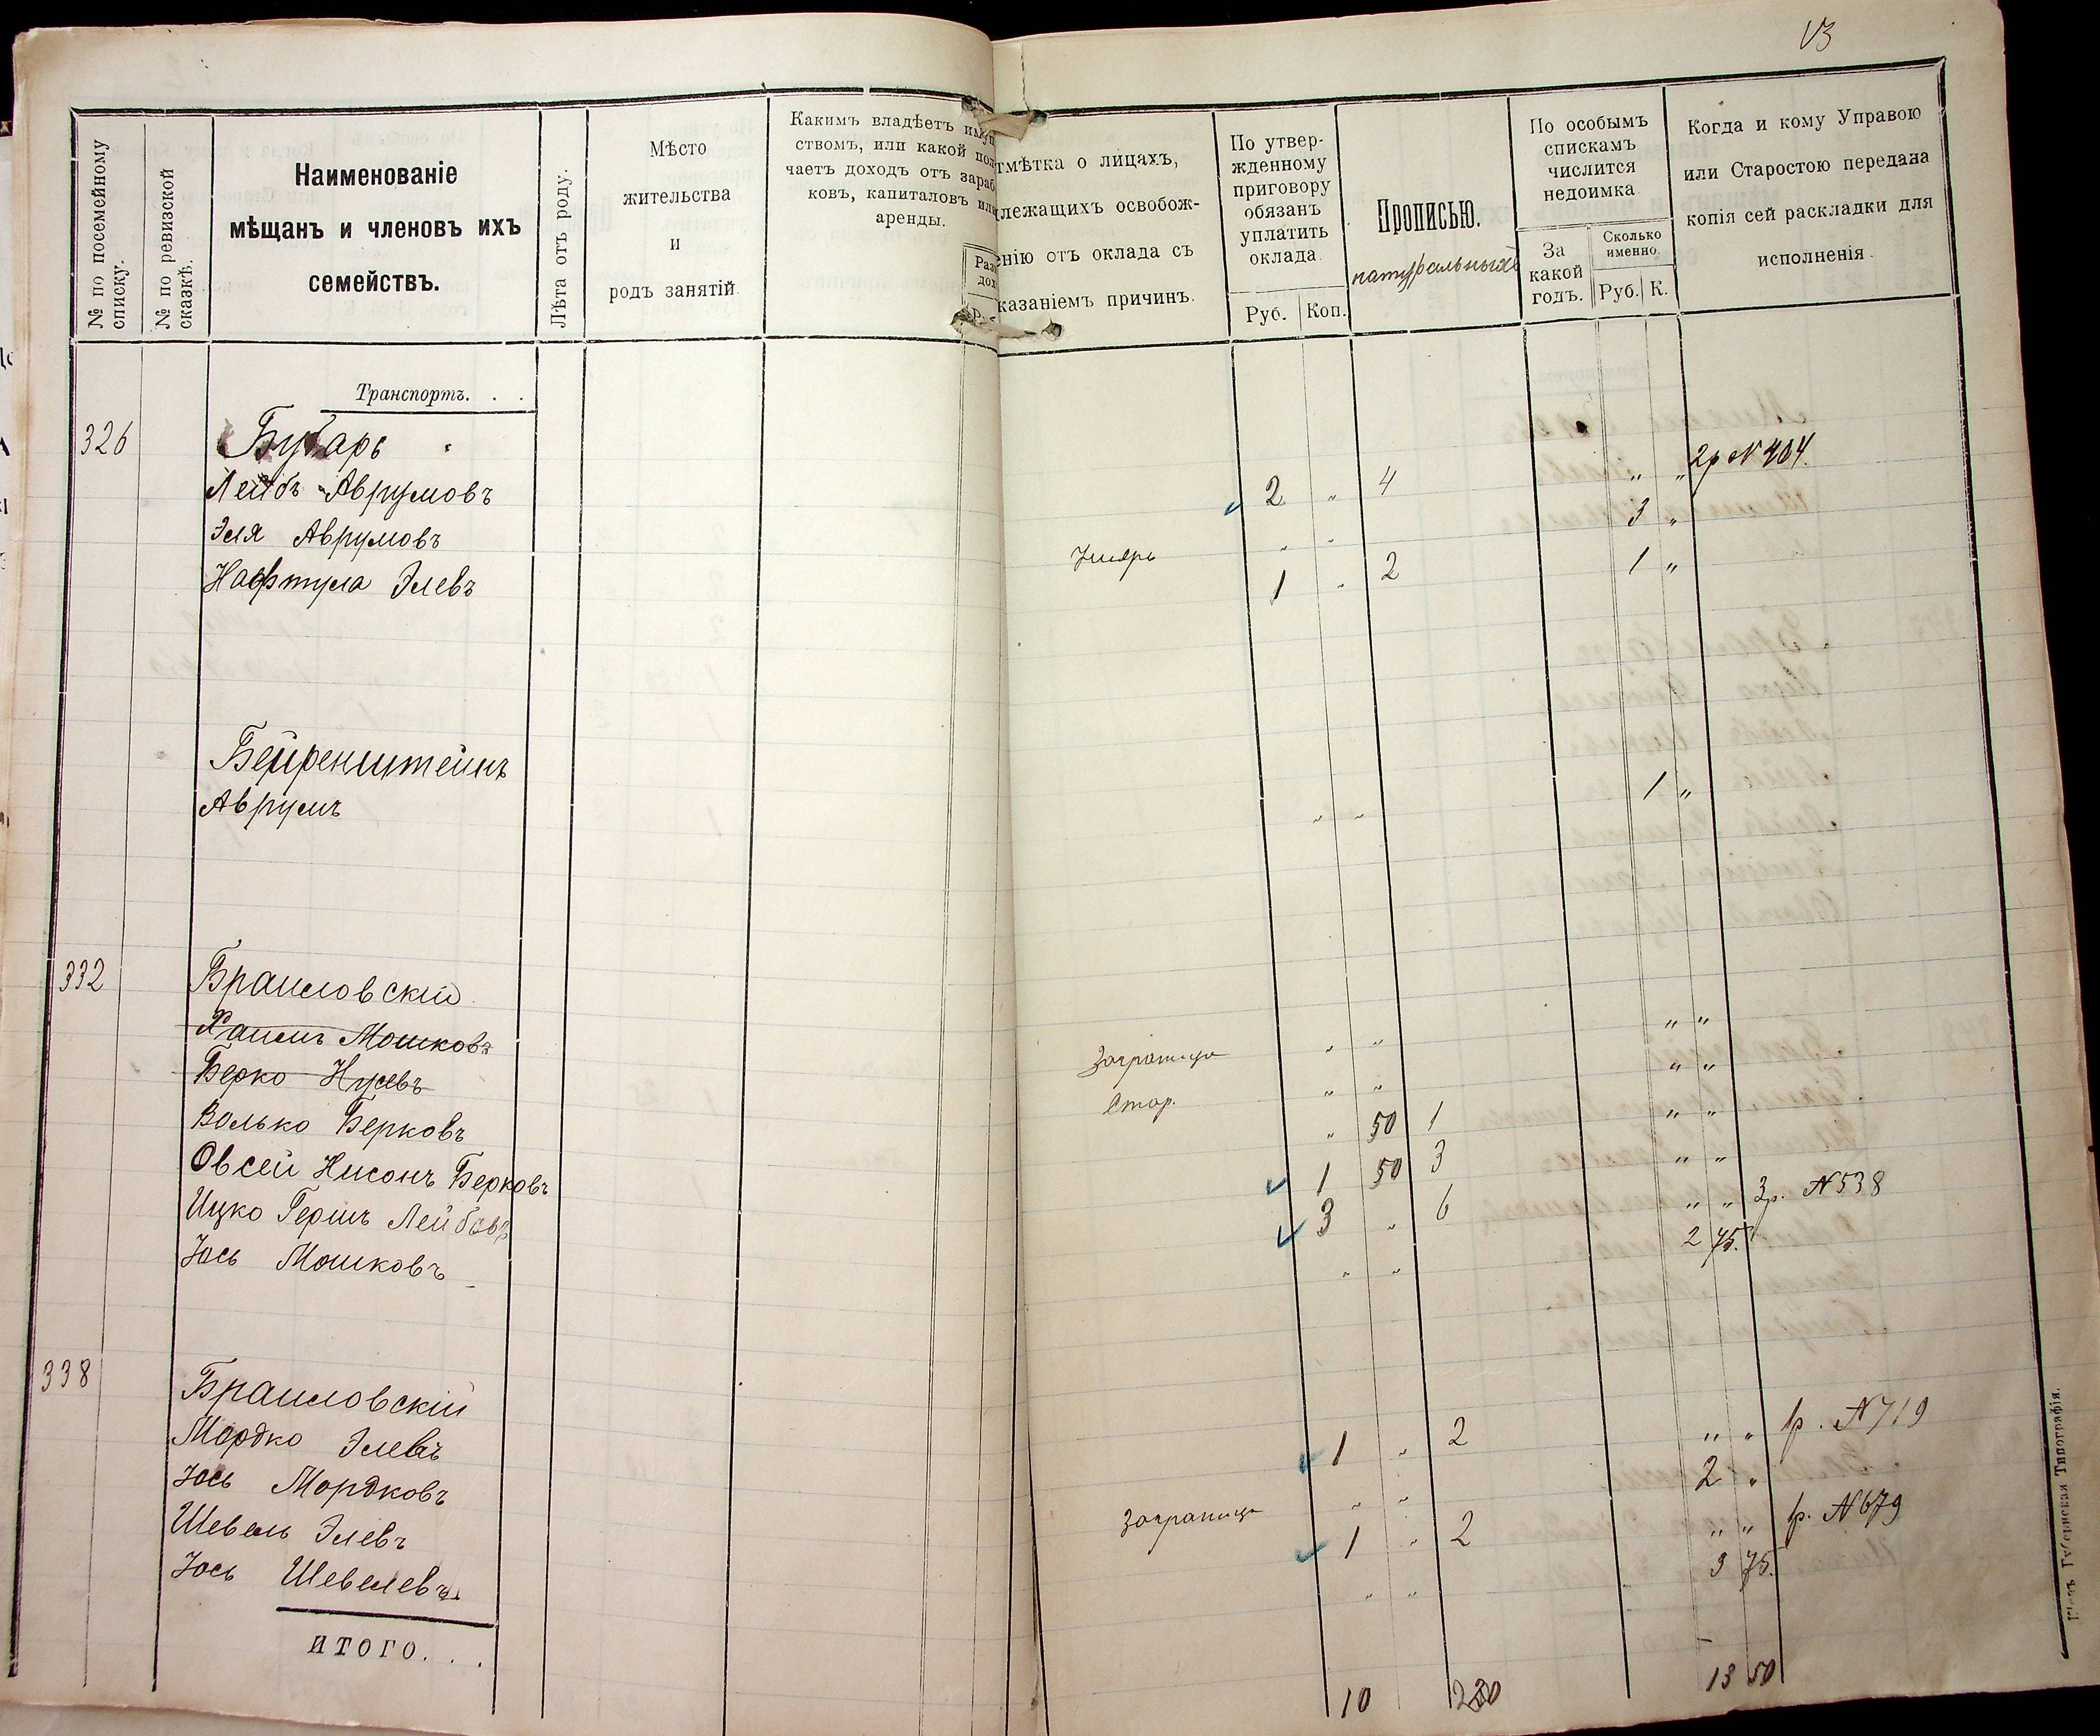 13
№ по посемейному списку.
№ по ревизской сказкѣ.
Наименованіе
мѣщанъ и членовъ ихъ
семействъ.
Лѣта отъ роду.
Мѣсто
жительства
и
родъ занятій
Какимъ владѣетъ имущ
ствомъ, или какой пол
чаетъ доходъ отъ зараб
ковъ, капиталовъ или
аренды.
Раз
дох
Р.
тмѣтка о лицахъ,
лежащихъ освобож-
енію отъ оклада съ
казаніемъ причинъ.
По утвер-
жденному
приговору
обязанъ
уплатить
оклада
Руб. Коп.
Прописью.
натуральныхъ
По особымъ
спискамъ
числится
недоимка
За
какой
годъ.
Сколько
именно
Руб. К.
Когда и кому Управою
или Старостою передана
копія сей раскладки для
исполненія.
Транспортъ. . .
326 Бубарь
Лейбъ Аврумовъ 2 „ 4 „ „ 2р №404.
Эля Аврумовъ „ „ 3 „
Нафтула Элевъ 1 „ 2 1 „
Аврумъ „ „ 1 „
332 Браиловскій
Хаимъ Мошковъ Заграница „ „ „ „
Берко Нусевъ Стар. „ „ „ „
Волько Берковъ „ 50 1 „ „
Овсей Нисонъ Берковъ 1 50 3 „ „
Ицко Гершъ Лейбовъ 3 „ 6 „ „ 3р. №538
Іось Мошковъ „ „ 2 75.
338 Браиловскій
Мордко Элевъ 1 „ 2 „ „ 1р. №719
Іось Мордковъ Заграница „ „ 2 „
Шевель Элевъ 1 „ 2 „ „ 1р. №679
Іось Шевелевъ „ „ 3 75.
ИТОГО. . .
10 13 50
Кіевъ Губернская Типографія.